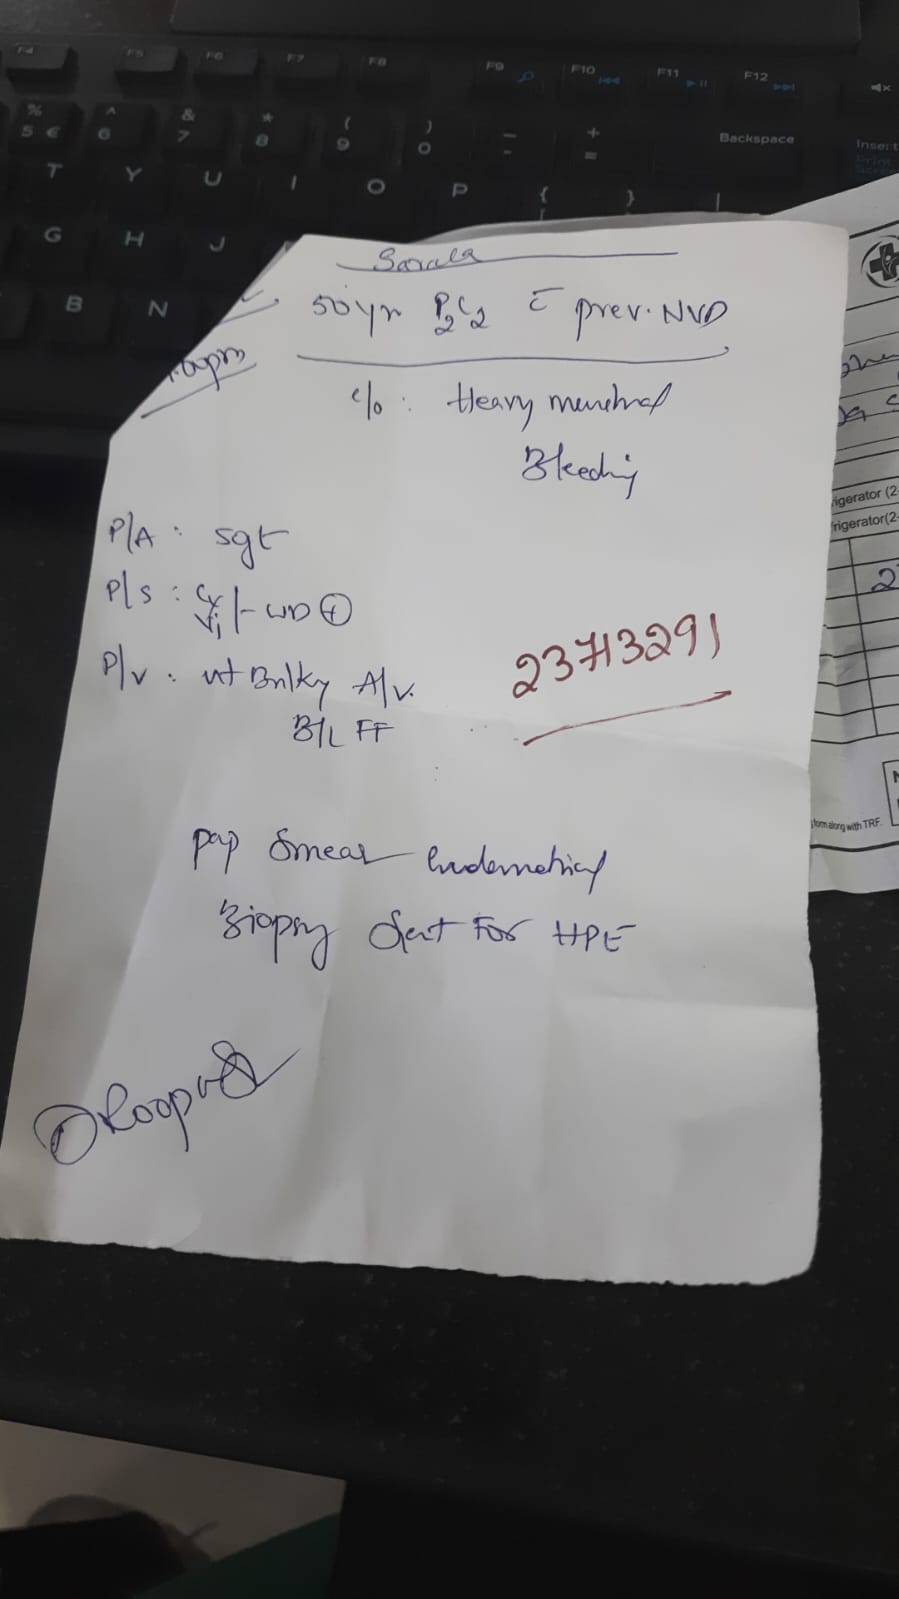 F4 F5 F6 F7 F8 F9 F10 F11 F12
% 5 € ^ 6 & 7 * 8 ( 9 ) 0 _ - + = Backspace Insert
Print
Scree
T Y U I O P { [ } |
G H J
B N
Sarala
50yr P2L2 c̄ prev. NVD
c/o : Heavy menstrual
Bleeding
P/A : sgt
P/S : Cx/Vg - WD ⊕
P/v : ut Bulky A/v.
B/L FF
23713291
pap Smear Endometrial
Biopsy Sent For HPE
Roopa
rigerator (2-
rigerator(2-
form along with TRF.